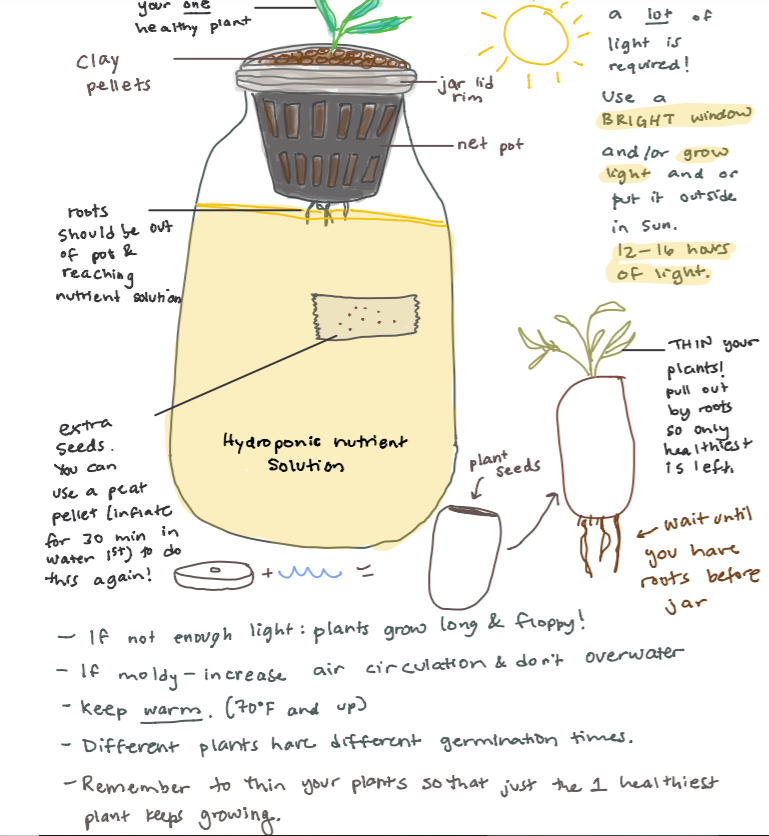 your one
healthy plant
clay
pellets
jar lid
rim
net pot
a lot of
light is
required!
Use a
BRIGHT window
and/or grow
light and or
put it outside
in sun.
12-16 hours
of light.
roots
should be out
of pot &
reaching
nutrient solution
THIN your
plants!
pull out
by roots
so only
healthiest
is left.
extra
seeds.
You can
use a peat
pellet (inflate
for 30 min in
water 1st) to do
this again!
Hydroponic nutrient
Solution
plant
seeds
+ =
wait until
you have
roots before
jar
- If not enough light: plants grow long & floppy!
- If moldy - increase air circulation & don't overwater
- Keep warm. (70°F and up)
- Different plants have different germination times.
- Remember to thin your plants so that just the 1 healthiest
plant keeps growing.